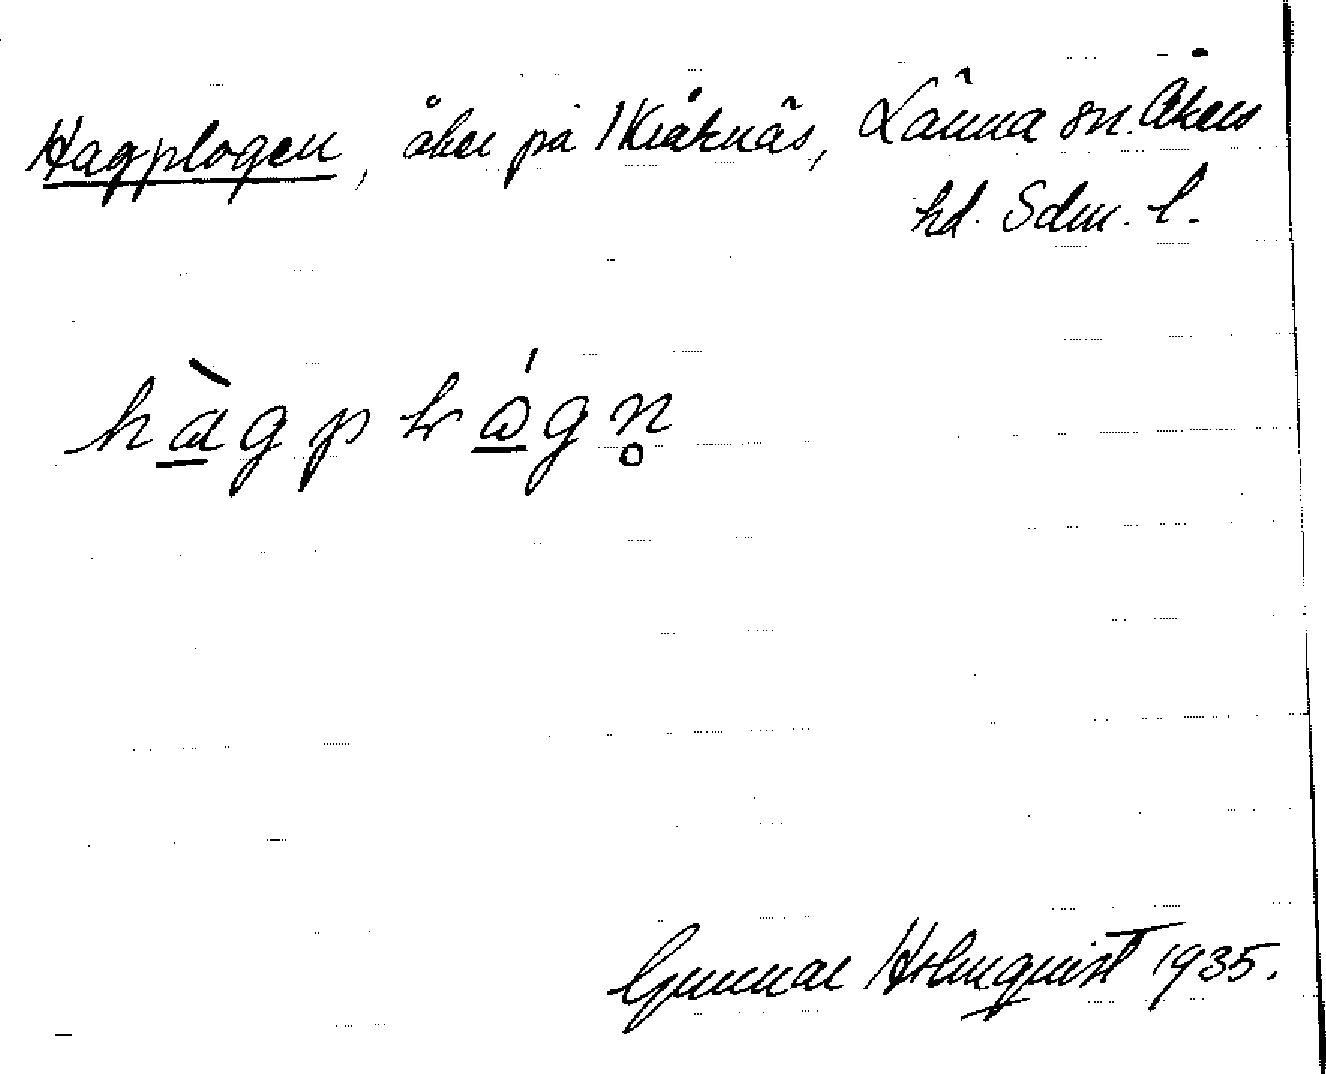 Hagplogen, åker på Kråknäs, Länna sn. Åkers
hd. Sdm. l.
hàgplógn̥
Gunnar Holmquist 1935.